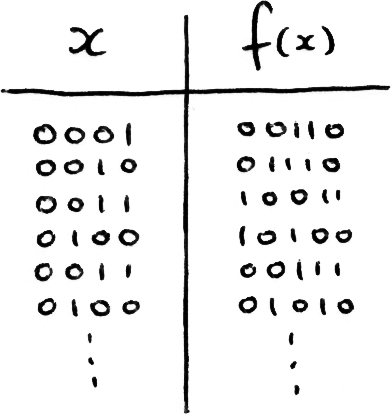 x f(x)
0001 00110
0010 01110
0011 10011
0100 10100
0011 00111
0100 01010